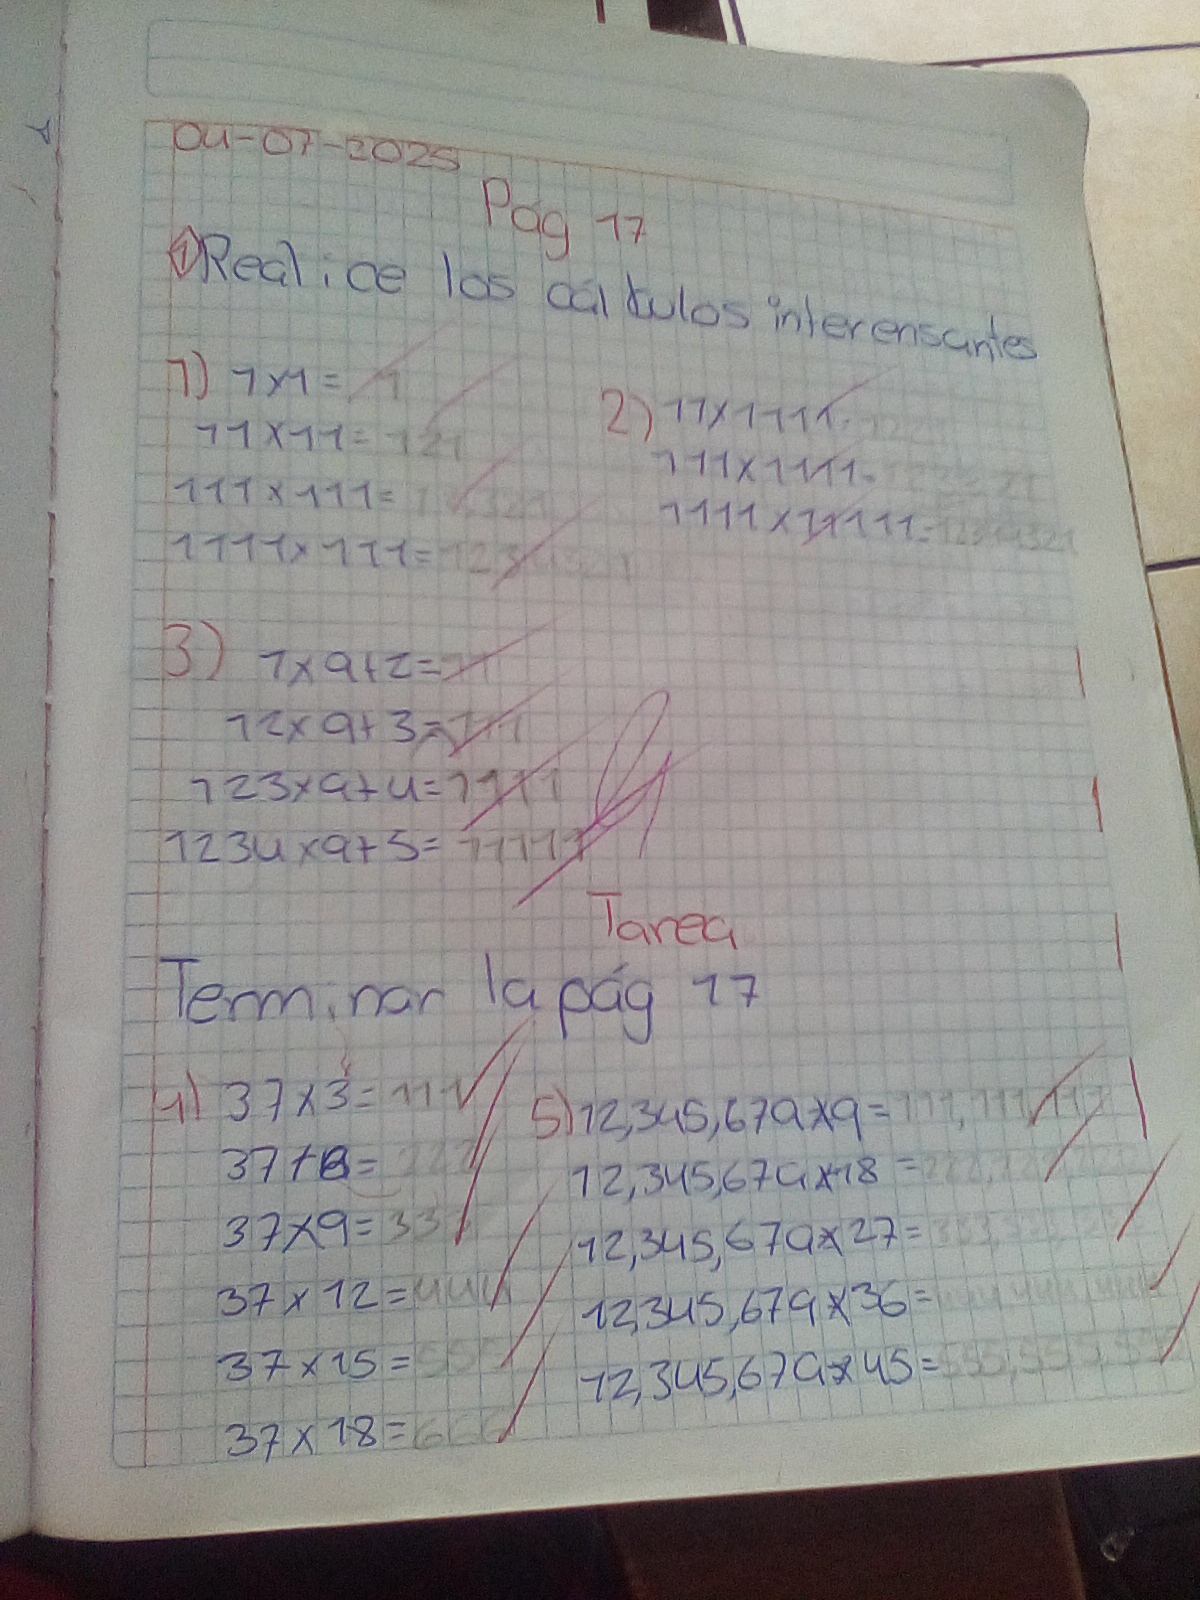 04-07-2025
Pág 17
1 Realice los cálculos interensantes
1) 1x1= 1
11x11= 121
111x111= 12,321
1111x111= 1234321
2) 11x1111=
111x1111=
1111x11111= 12344321
3) 1x9+2= 11
12x9+3= 111
123x9+4= 1111
1234x9+5= 11111
Tarea
Terminar la pág 17
4) 37x3= 111
37+6= 222
37x9= 333
37x12= 444
37x15= 555
37x18= 666
5) 12,345,679x9= 111,111,111
12,345,679x18= 222,222,222
12,345,679x27= 333,333,333
12,345,679x36= 444,444,444
12,345,679x45= 555,555,555